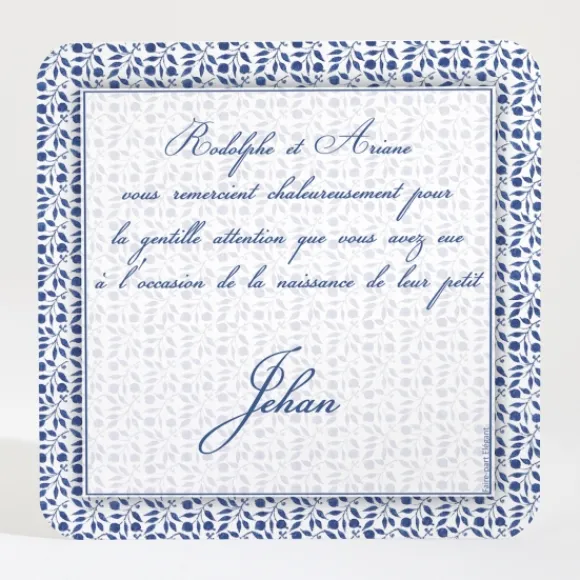 Rodolphe et Ariane
vous remercient chaleureusement pour
la gentille attention que vous avez eue
à l'occasion de la naissance de leur petit
Jehan
Faire-part Elégant